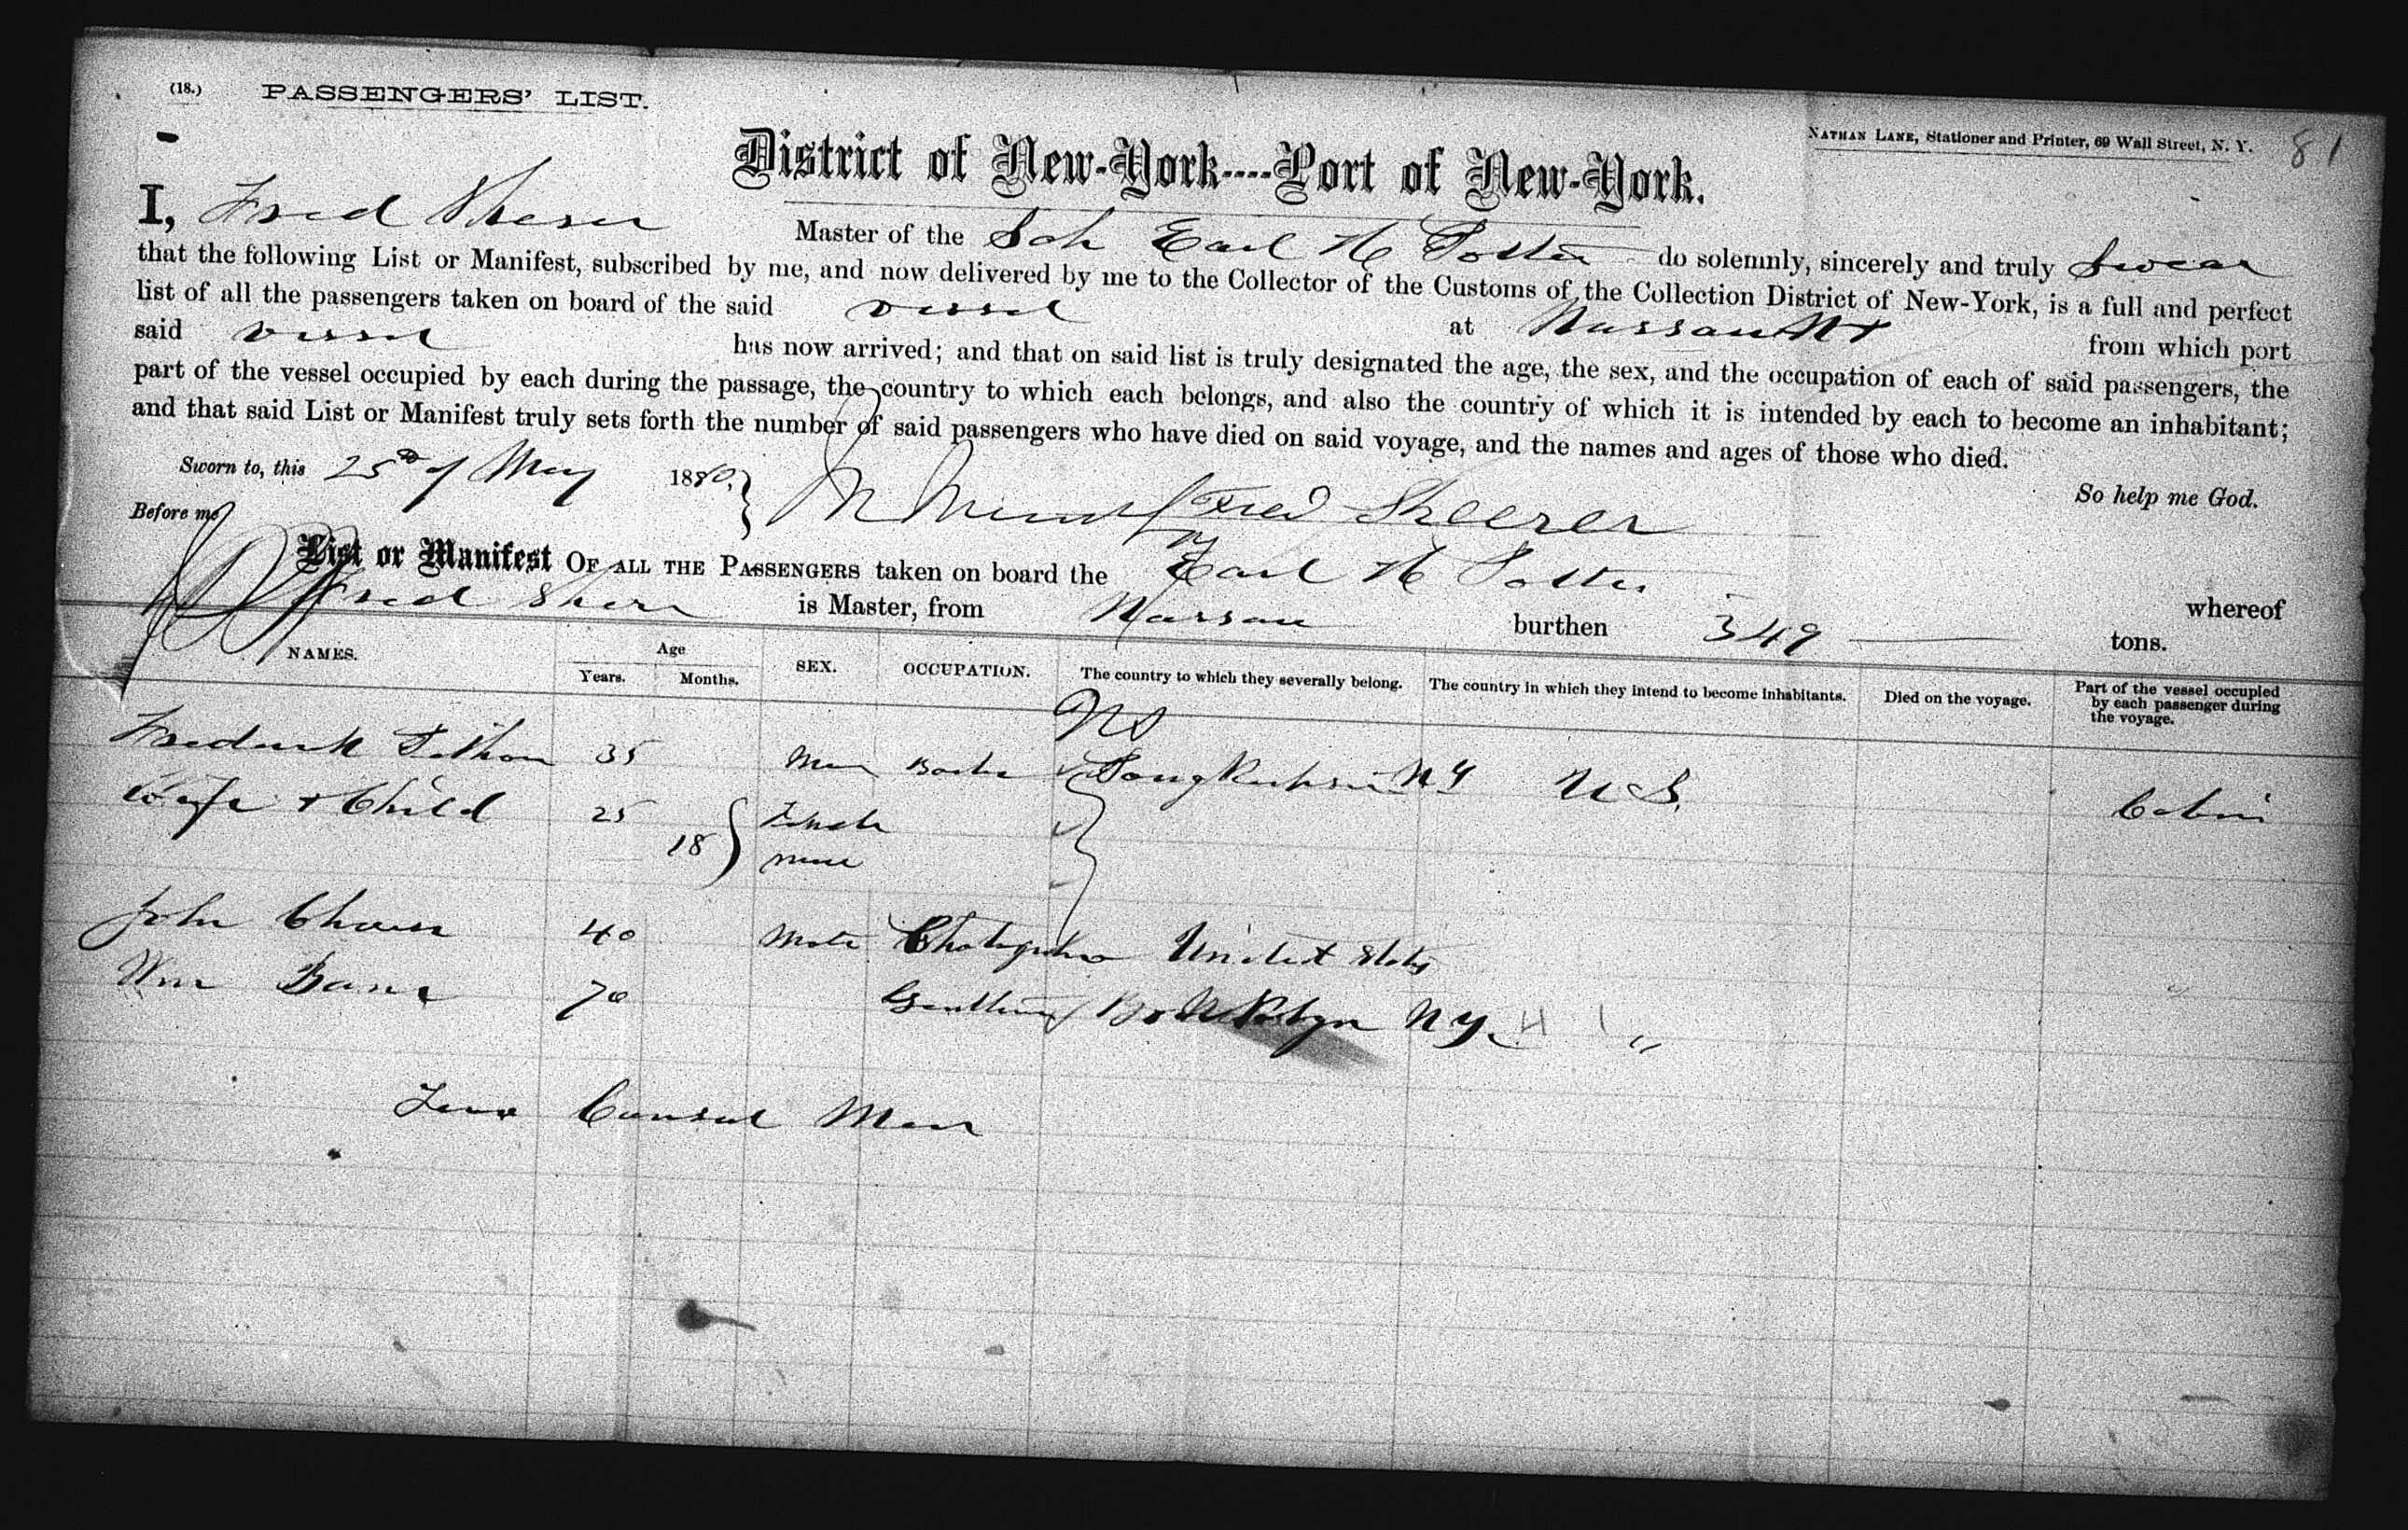 (18.) PASSENGERS' LIST.
NATHAN LANE, Stationer and Printer, 69 Wall Street, N. Y. 81
District of New-York----Port of New-York.
I, Fred Master of the Sch Earl H Potter do solemnly, sincerely and truly Swear
that the following List or Manifest, subscribed by me, and now delivered by me to the Collector of the Customs of the Collection District of New-York, is a full and perfect
list of all the passengers taken on board of the said vessel at Nassau from which port
said vessel has now arrived; and that on said list is truly designated the age, the sex, and the occupation of each of said passengers, the
part of the vessel occupied by each during the passage, the country to which each belongs, and also the country of which it is intended by each to become an inhabitant;
and that said List or Manifest truly sets forth the number of said passengers who have died on said voyage, and the names and ages of those who died.
So help me God.
Sworn to, this 25th of May 1880. Fred Sheerer
Before me
List or Manifest OF ALL THE PASSENGERS taken on board the Earl H Potter whereof
Fred is Master, from Nassau burthen 349 tons.
NAMES. Age Years. Months. SEX. OCCUPATION. The country to which they severally belong. The country in which they intend to become inhabitants. Died on the voyage. Part of the vessel occupied by each passenger during the voyage.
Frederick 35 NY U S. Cabin
Wife & Child 25 Female
18
John 40 United States
Wm 70 N Y. "
Consul Men